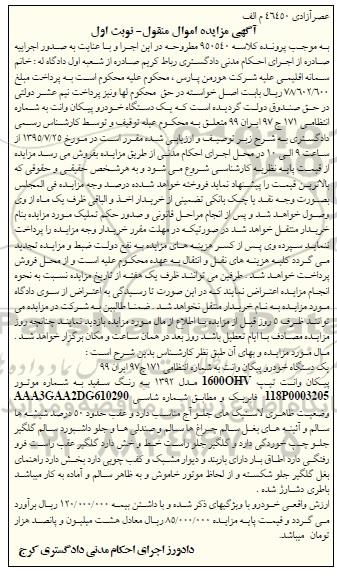 عصرآزادی ٤٦٤٥٠ م الف
آگهی مزایده اموال منقول- نوبت اول
به موجب پرونده کلاسه ٩٥٠٥٤٠ مطروحه در این اجرا و با عنایت به صدور اجراییه
صادره از اجرای احکام مدنی دادگستری رباط کریم صادره از شعبه اول دادگاه له : خانم
سمانه اقلیمی علیه شرکت هورمن پارس ، محکوم علیه محکوم است به پرداخت مبلغ
٧٨/٦٠٢/٦٠٠ ریال بابت اصل خواسته در حق محکوم لها ونیز پرداخت نیم عشر دولتی
در حق صندوق دولت گردیده است که یک دستگاه خودرو پیکان وانت به شماره
انتظامی ١٧١ ج ٩٧ ایران ٩٩ متعلق به محکوم عبله توقیف و توسط کارشناس رسمی
دادگستری به شرح زیر توصیف و ارزیابی شده مقرر است در مورخ ١٣٩٥/٧/٢٥ از
ساعت ٩ الی ١٠ در محل اجرای احکام مدنی از طریق مزایده بفروش می رسد مزایده
از قیمت پایه نظریه کارشناسی شروع می شود و به هرشخص حقیقی و حقوقی که
بالاترین قیمت را پیشنهاد نماید فروخته خواهد شد ده درصد وجه مزایده فی المجلس
بصورت وجه نقد یا چک بانکی تضمینی از خریدار اخذ و الباقی ظرف یک ماه از وی
وصول خواهد شد و پس از انجام مراحل قانونی و صدور حکم تملیک مورد مزایده بنام
خریدار منتقل خواهد شد در صورتیکه در مهلت مقرر خریدار وجه مزایده را پرداخت
ننماید سپرده وی پس از کسر هزینه های مزایده به نفع دولت ضبط و مزایده تجدید
می گردد کلیه هزینه های نقل و انتقال به عهده محکوم علیه است و از محل فروش
پرداخت خواهد شد . طرفین می توانند ظرف یک هفته از تاریخ مزایده نسبت به نحوه
انجام مزایده اعتراض نمایند که در این صورت تا رسیدگی به اعتراض از سوی دادگاه
مورد مزایده به نام خریدار منتقل نخواهد شد . ضمنا طالبین به شرکت در مزایده می
توانند ظرف ٥ روز قبل از مزایده با اطلاع از مال مورد مزایده بازدید نمایند چنانچه روز
مزایده مصادف با ایام تعطیل باشد روز بعد در همان ساعت و مکان برگزار خواهد شد .
مال مورد مزایده و بهای آن طبق نظر کارشناس بدین شرح است :
یک دستگاه خودرو پیکان وانت به شماره انتظامی ١٧١ج٩٧ ایران ٩٩
پیکان وانت تیپ 1600OHV مدل ١٣٩٢ به رنگ سفید به شماره موتور
118P0003205 فابریک و مطابق شماره شاسی AAA3GAA2DG610290
وضعیت ظاهری لاستیک های جلو آج مناسب دارد و عقب حدود ٥٠ درصد شیشه ها
سالم و آئینه های بغل سالم چراغ ها سالم و صندلی ها و جلو داشبورد سالم گلگیر
جلو چپ خوردگی دارد و گلگیر جلو راست خط و خش دارد گلگیر عقب راست فرو
رفتگی دارد اطاق بار دارای باربند و دیوار مشبک و کف چوبی دارد پخش دارد راهنمای
بغل گلگیر جلو شکسته و از لحاظ موتور خاموش و به ظاهر سالم و آماده به کار میباشد
باطری دشارژ شده .
ارزش واقعی خودرو با ویژگیهای ذکر شده و با داشتن بیمه ١٢٠/٠٠٠/٠٠٠ ریال برآورد
می گردد و قیمت پایه مزایده ٨٥/٠٠٠/٠٠٠ ریال معادل هشت میلیون و پانصد هزار
تومان میباشد.
دادورز اجرای احکام مدنی دادگستری کرج